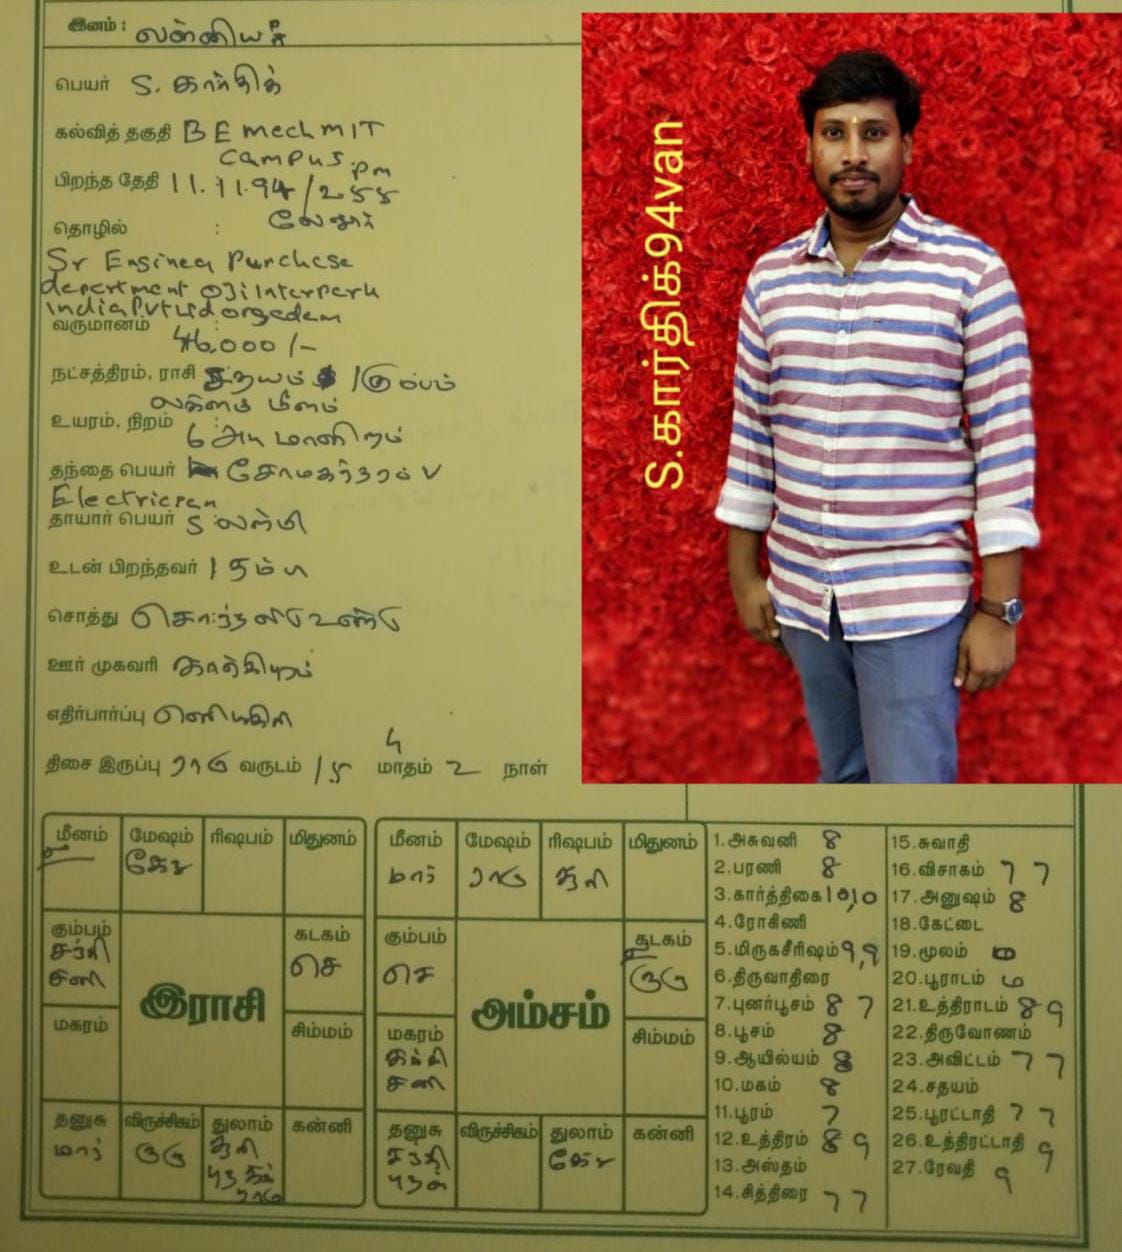 இனம் : வன்னியர்
பெயர் S. கார்த்திக்
கல்வித் தகுதி B E mech MIT
campus
பிறந்த தேதி 11.11.94 / 2 55 pm
வேலூர்
தொழில் :
Sr Engineer Purchase
department
India Pvt Ltd
வருமானம் :
46,000 /-
நட்சத்திரம், ராசி சதயம் / கும்பம்
லக்னம் மீனம்
உயரம், நிறம் :
6 அடி மாநிறம்
தந்தை பெயர் V
Electrician
தாயார் பெயர் S
உடன் பிறந்தவர் 1 தம்பி
சொத்து சொந்த வீடு உண்டு
ஊர் முகவரி
எதிர்பார்ப்பு
திசை இருப்பு ராகு வருடம் 15 மாதம் 4 2 நாள்
S.கார்திக்94van
மீனம் மேஷம் ரிஷபம் மிதுனம்
ல கேது
கும்பம் கடகம்
சந்தி சனி செ
இராசி
மகரம் சிம்மம்
தனுசு விருச்சிகம் துலாம் கன்னி
மாந் குரு சூரி
புத சுக்
ராகு
மீனம் மேஷம் ரிஷபம் மிதுனம்
மாந் ராகு சூரி
கும்பம் கடகம்
செ ல குரு
அம்சம்
மகரம் சிம்மம்
சுக்கி
சனி
தனுசு விருச்சிகம் துலாம் கன்னி
சந்தி கேது
புதன்
1.அசுவனி 8
2.பரணி 8
3.கார்த்திகை 10,10
4.ரோகிணி
5.மிருகசீரிஷம் 9,9
6.திருவாதிரை
7.புனர்பூசம் 8 7
8.பூசம் 8
9.ஆயில்யம் 8
10.மகம் 8
11.பூரம் 7
12.உத்திரம் 8 9
13.அஸ்தம்
14.சித்திரை 7 7
15.சுவாதி
16.விசாகம் 7 7
17.அனுஷம் 8
18.கேட்டை
19.மூலம்
20.பூராடம்
21.உத்திராடம் 8 9
22.திருவோணம்
23.அவிட்டம் 7 7
24.சதயம்
25.பூரட்டாதி 7 7
26.உத்திரட்டாதி 9
27.ரேவதி 9